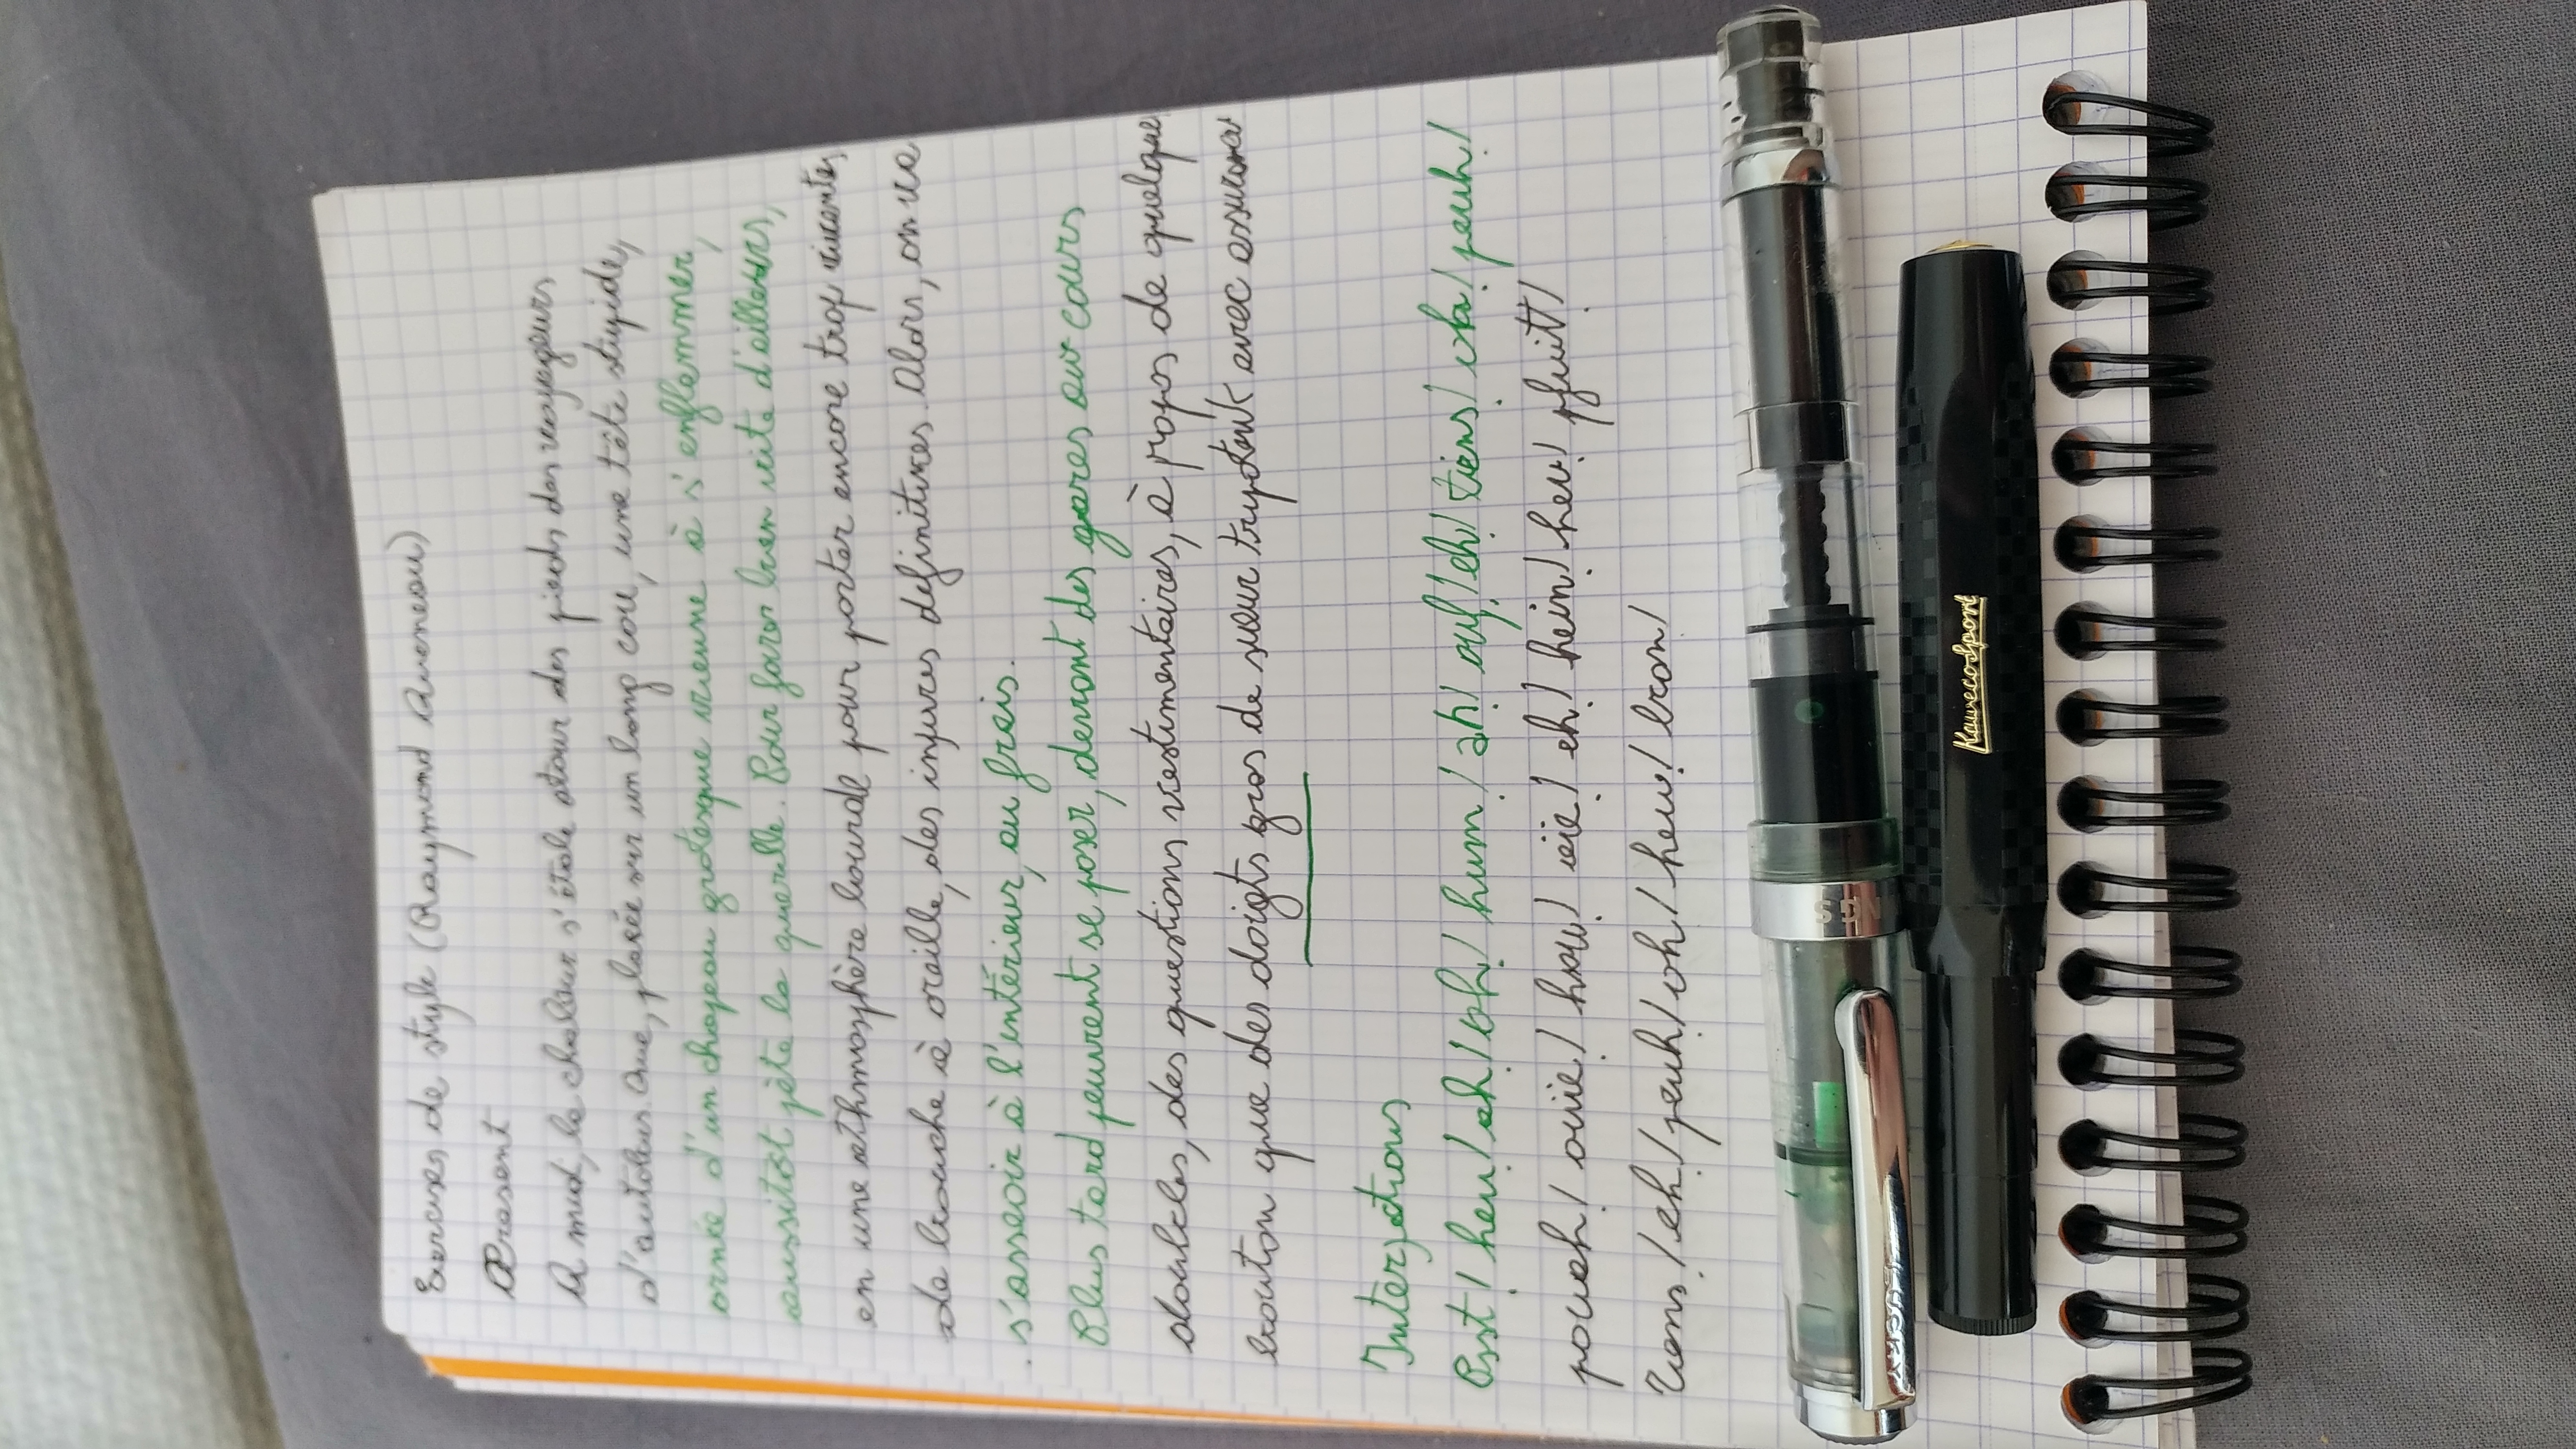 Exercices de style (Raymond Queneau)
Présent
A midi, la chaleur s'étale atour des pieds des voyageurs
d'autobus. Que, placée sur un long cou, une tête stupide,
ornée d'un chapeau grotesque vienne à s'enflammer,
aussitôt pète la querelle. Pour foirer bien vite d'ailleurs,
en une athmosphère lourde pour porter encore trop vivantes,
de bouche à oreille, des injures définitives. Alors, on va
s'asseoir à l'intérieur, au frais.
Plus tard peuvent se poser, devant des gares aux cours
doubles, des questions vestimentaires, à propos de quelque
bouton que des doigts gras de sueur tripotent avec assurance
Interjections
Psst! heu! ah! oh! hum! ah! ouf! eh! tiens! oh! peuh!
pouah! ouïe! hou! aïe! eh! hein! heu! pfuitt!
Tiens! eh! peuh! oh! heu! bon!
STN
Kaweco Sport